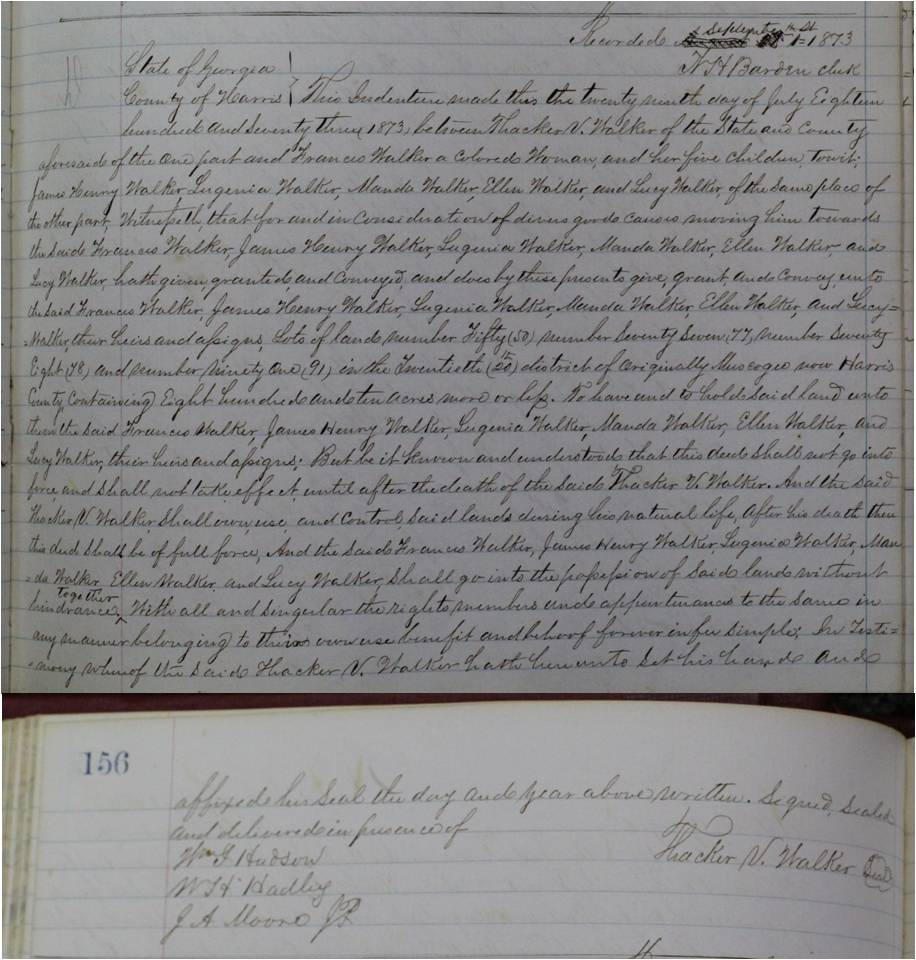 Recorded September 1st 1873
N H Barden clerk
State of Georgia
County of Harris } This Indenture made this the twenty ninth day of July Eighteen
hundred and Seventy three, 1873, between Thacker V. Walker of the State and County
aforesaid of the one part and Francis Walker a Colored Woman, and her five children, towit;
James Henry Walker Lugenia Walker, Manda Walker, Ellen Walker, and Lucy Walker, of the Same place of
the other part, Witnesseth, that for and in Consideration of divers good causes moving him towards
the said Francis Walker, James Henry Walker, Lugenia Walker, Manda Walker, Ellen Walker, and
Lucy Walker, hath given, granted and Conveyed, and does by these presents give, grant, and Convey, unto
the Said Francis Walker, James Henry Walker, Lugenia Walker, Manda Walker, Ellen Walker, and Lucy=
=Walker, their heirs and assigns, Lots of land number Fifty (50) number Seventy Seven, 77, number Seventy
Eight (78) and number Ninety One (91) in the Twentieth (20th) district of Originally Muscogee now Harris
County, Containing Eight hundred and ten acres more or less. To have and to hold said land unto
them the said Francis Walker, James Henry Walker, Lugenia Walker, Manda Walker, Ellen Walker, and
Lucy Walker, their heirs and assigns; But be it known and understood that this deed shall not go into
force and shall not take effect until after the death of the said Thacker V. Walker. And the said
Thacker V. Walker shall own, use and Control, said lands during his natural life, After his death then
this deed shall be of full force, And the said Francis Walker, James Henry Walker Lugenia Walker, Man
=da Walker Ellen Walker, and Lucy Walker, shall go into the possession of said lands without
hindrance, together With all and singular the rights members and appurtenances to the same in
any manner belonging to their own use benefit and behoof forever in fee simple; In Testi=
=mony whereof the said Thacker V. Walker hath here unto Set his hand and
156
affixed his Seal the day and year above written. Signed, Sealed
and delivered in presence of
Wm F Hudson
Thacker V. Walker Seal
W H Hadley
J A Moore JP